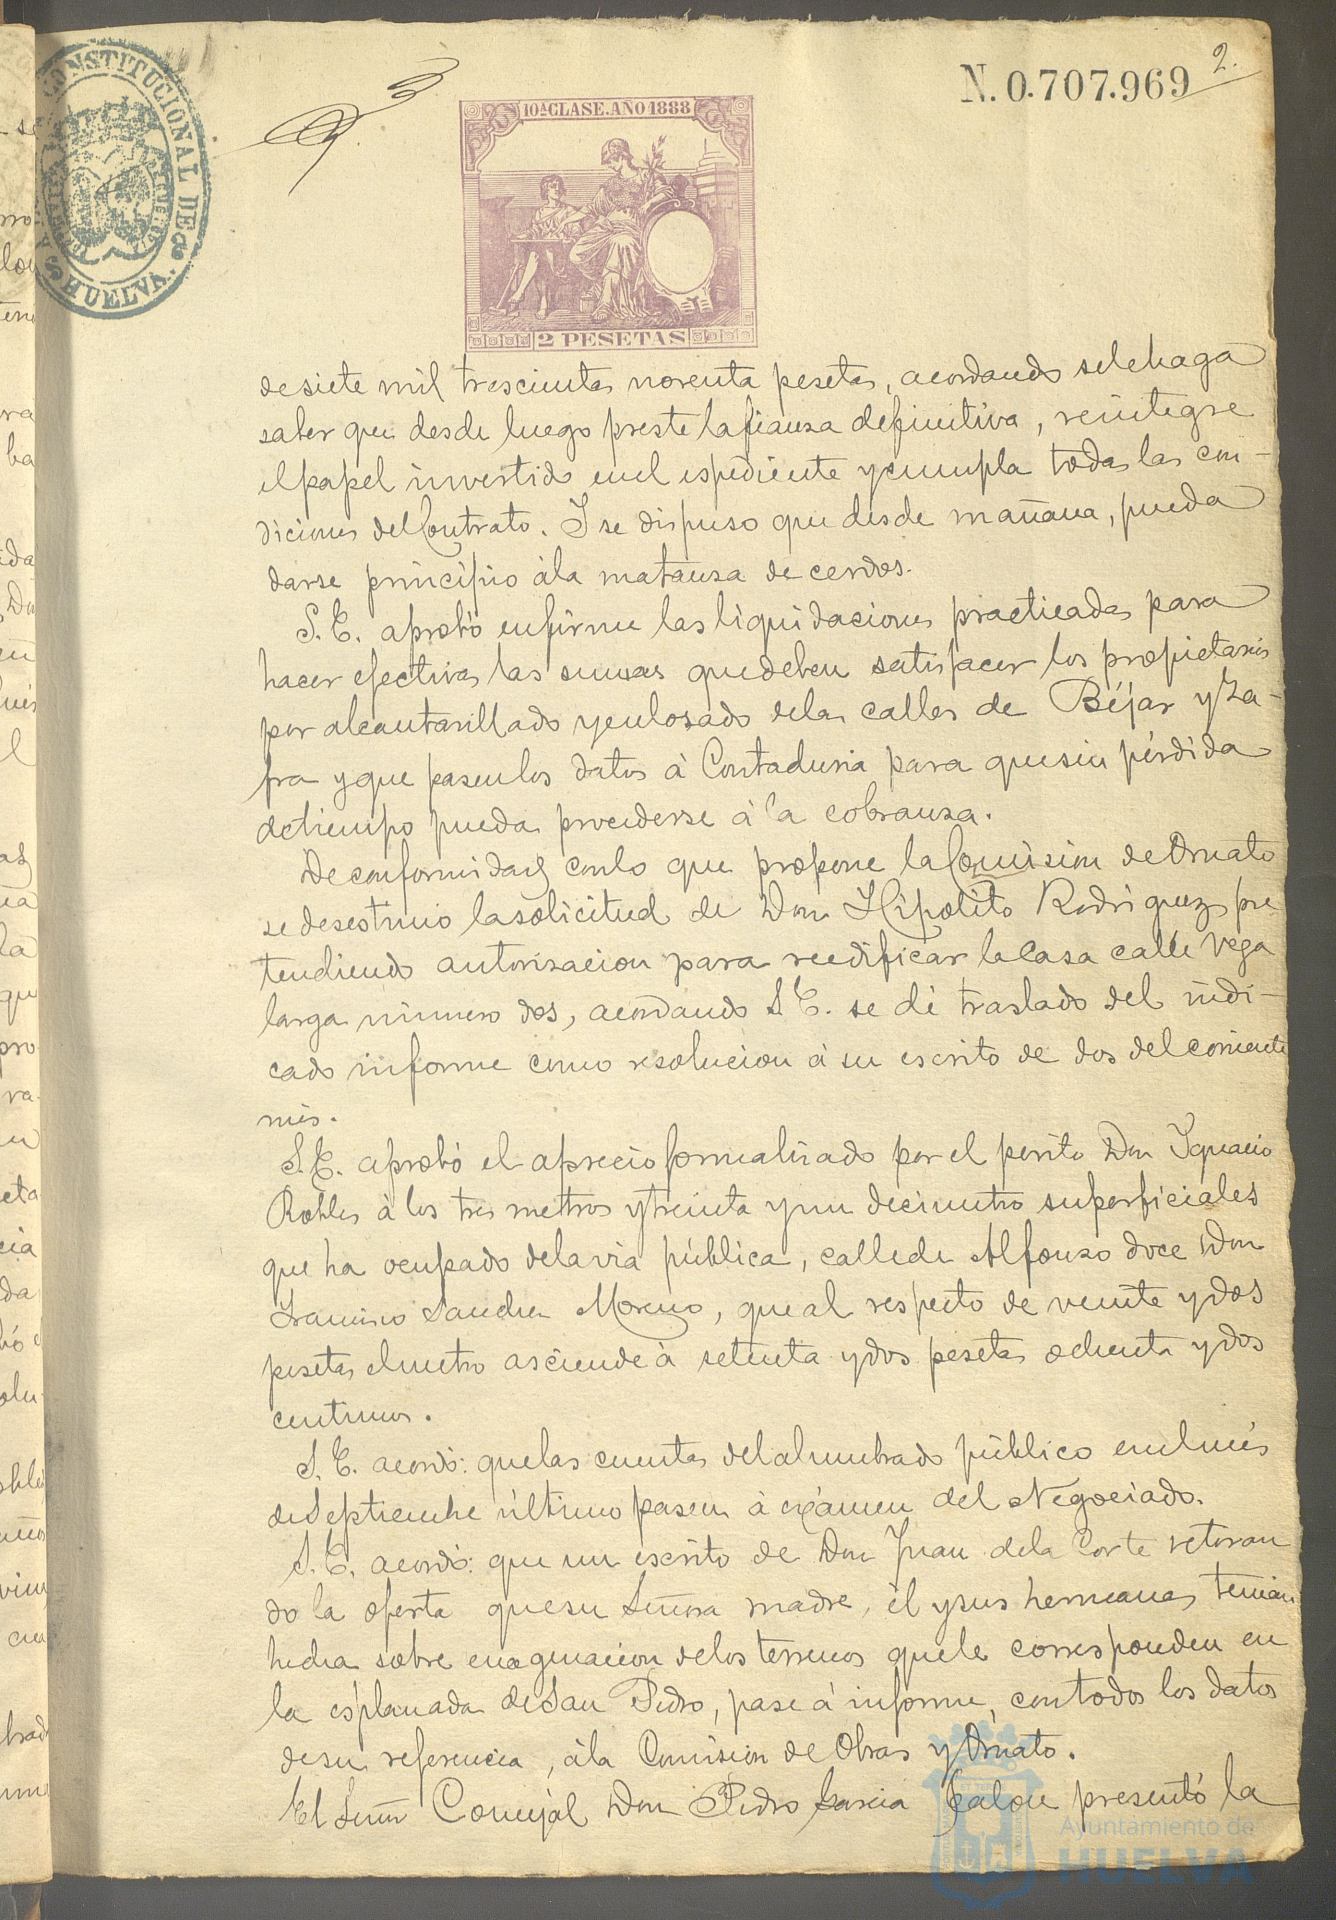 N. 0.707.969
2.
CONSTITUCIONAL DE
HUELVA.
10ª CLASE. AÑO 1888
2 PESETAS
de siete mil trescientas noventa pesetas, acordando se le haga
saber que desde luego preste la fianza definitiva, reintegre
el papel invertido en el espediente y cumpla todas las con-
diciones del Contrato. Y se dispuso que desde mañana, pueda
darse principio á la matanza de cerdos.
S. E. aprobó en firme las liquidaciones practicadas para
hacer efectivas las sumas que deben satisfacer los propietarios
por alcantarillado y enlosado de las calles de Béjar y Za-
fra y que pasen los datos á Contaduria para que sin pérdida
de tiempo pueda procederse á la cobranza.
De conformidad con lo que propone la Comision de Ornato
se desestimó la solicitud de Don Hipólito Rodriguez pre-
tendiendo autorizacion para reedificar la Casa calle Vega
larga número dos, acordando S. E. se dé traslado del indi-
cado informe como resolucion á su escrito de dos del corriente
mes.
S. E. aprobó el aprecio formalizado por el perito Don Ignacio
Robles á los tres metros y treinta y un decimetro superficiales
que ha ocupado de la via pública, calle de Alfonso doce Don
Francisco Sanchez Moreno, que al respecto de veinte y dos
pesetas el metro asciende á setenta y dos pesetas ochenta y dos
centimos.
S. E. acordó: que las cuentas del alumbrado público en el mes
de Septiembre último pasen á exámen del Negociado.
S. E. acordó: que un escrito de Don Juan de la Corte retiran
do la oferta que su Señora madre, él y sus hermanas tenian
hecha sobre enagenacion de los terrenos que le corresponden en
la esplanada de San Pedro, pase á informe, con todos los datos
de su referencia, á la Comision de Obras y Ornato.
El Señor Concejal Don Pedro Garcia Jalon presentó la
Ayuntamiento de
HUELVA